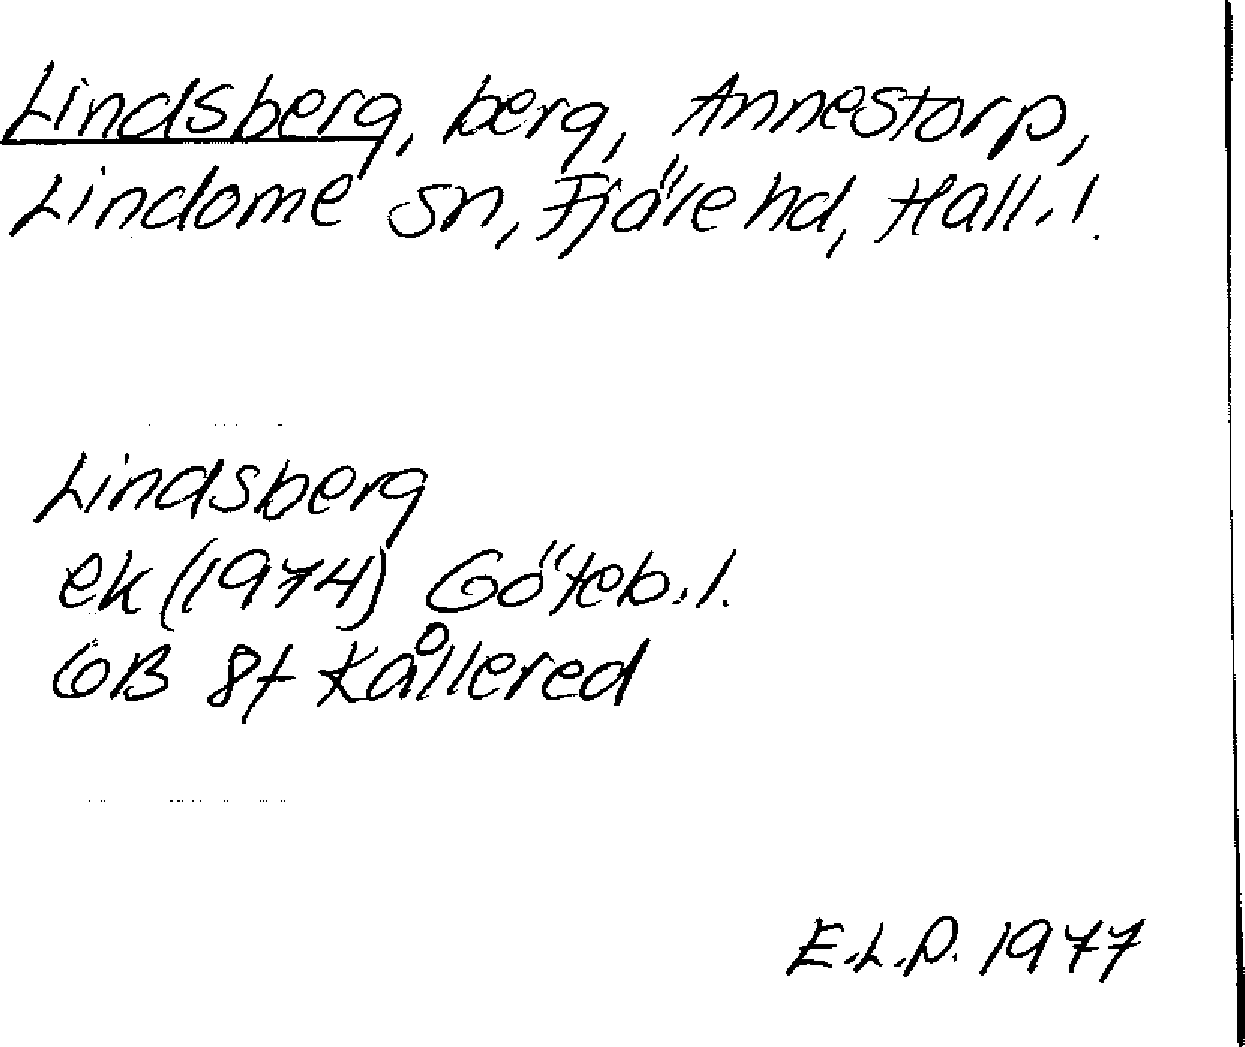 Lindsberg, berg, Annestorp,
Lindome sn, Fjäre hd, Hall. l.
Lindsberg
ek (1974) Göteb. l.
6B 8f Kållered
E.L.P. 1977